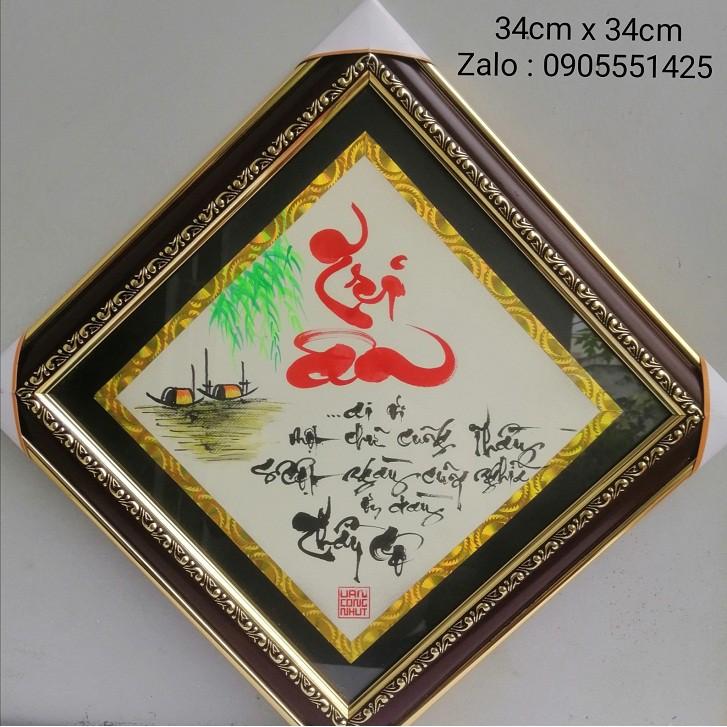 34cm x 34cm
Zalo : 0905551425
Tri
ân
...ai ơi
một chữ cũng thầy
ngày cũng nghĩa
ơn dày
Thầy Cô
VAN
CONG
NHUT